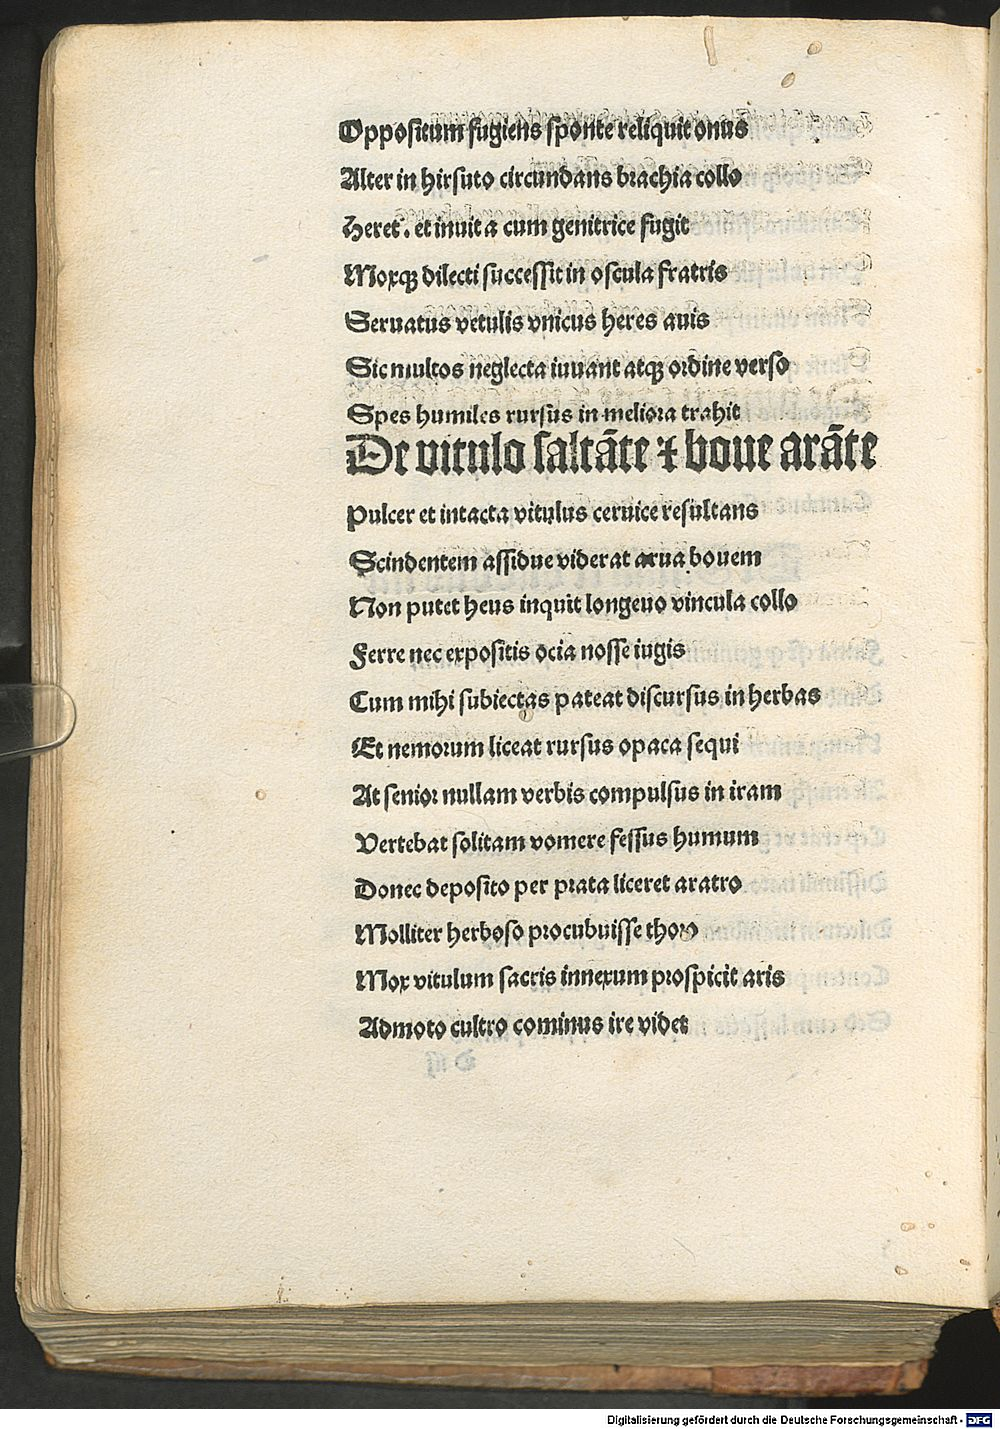 Oppositum fugiens sponte reliquit onus
Alter in hirsuto circundans brachia collo
Heret. et inuita cum genitrice fugit
Moxqꝫ dilecti successit in oscula fratris
Seruatus vetulis vnicus heres auis
Sic multos neglecta iuuant atqꝫ ordine verso
Spes humiles rursus in meliora trahit
De vitulo saltāte ⁊ boue arāte
Pulcer et intacta vitulus ceruice resultans
Scindentem assidue viderat arua bouem
Non putet heus inquit longeuo vincula collo
Ferre nec expositis ocia nosse iugis
Cum mihi subiectas pateat discursus in herbas
Et nemorum liceat rursus opaca sequi
At senior nullam verbis compulsus in iram
Vertebat solitam vomere fessus humum
Donec deposito per prata liceret aratro
Molliter herboso procubuisse thoro
Mox vitulum sacris innexum prospicit aris
Admoto cultro cominus ire videt
Digitalisierung gefördert durch die Deutsche Forschungsgemeinschaft - DFG